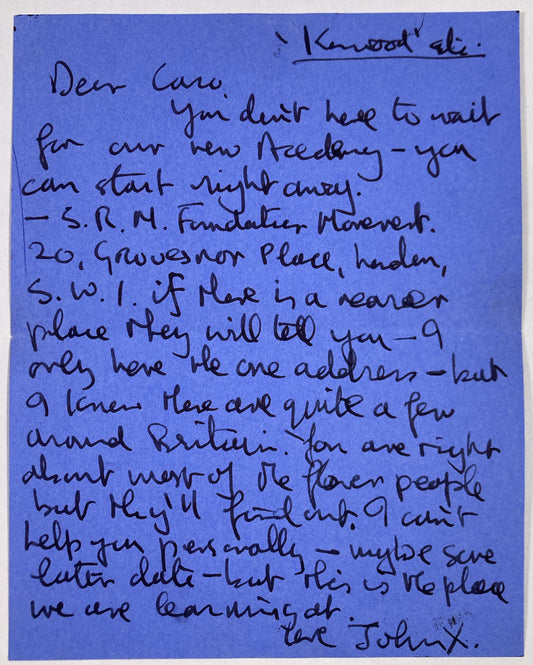 'Kenwood' etc.
Dear Caro.
You don't have to wait
for our new Academy – you
can start right away.
– S.R.M. Foundation Movement.
20, Grovesnor Place, London,
S.W.1. if there is a nearer
place they will tell you – I
only have the one address – but
I know there are quite a few
around Britain. You are right
about most of the flower people
but they'll find out. I can't
help you personally – maybe some
later date – but this is the place
we are learning at.
love John X.